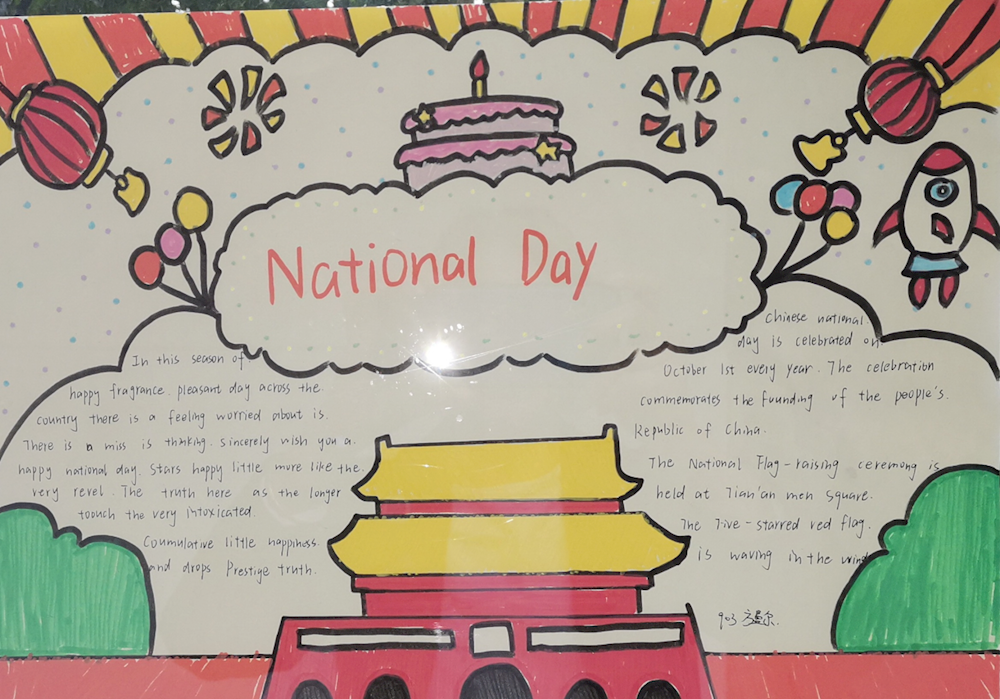 National Day
In this season of
happy fragrance. pleasant day across the
country there is a feeling worried about is.
There is a miss is thinking. Sincerely wish you a.
happy national day. Stars happy little more like the.
very revel. The truth here as the longer
toouch the very intoxicated.
Coumulative little happiness.
and drops Prestige truth.
Chinese national
day is celebrated on
October 1st every year. The celebration
commemorates the founding of the people's.
Republic of China.
The National Flag-raising ceremong is
held at Tian'an men Square.
The Five-starred red flag.
is waving in the wind
903